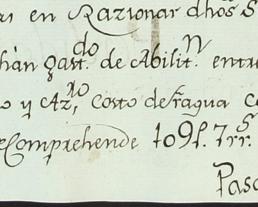 en Razionar dhos
han gast.do de Abilit.n entre
o y Az.ro, costo de fragua
Comprehende 109f. 7rr.s
Pas